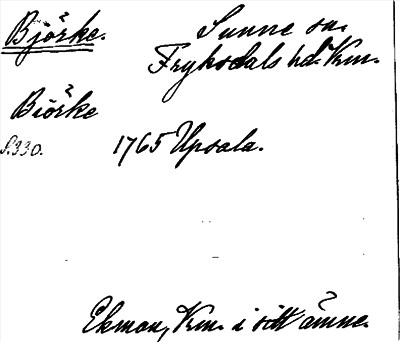 Björke. Sunne sn.
Fryksdals hd. Vrm.
Biörke
S. 330. 1765 Upsala.
Ekman, Vrm. i sitt ämne.